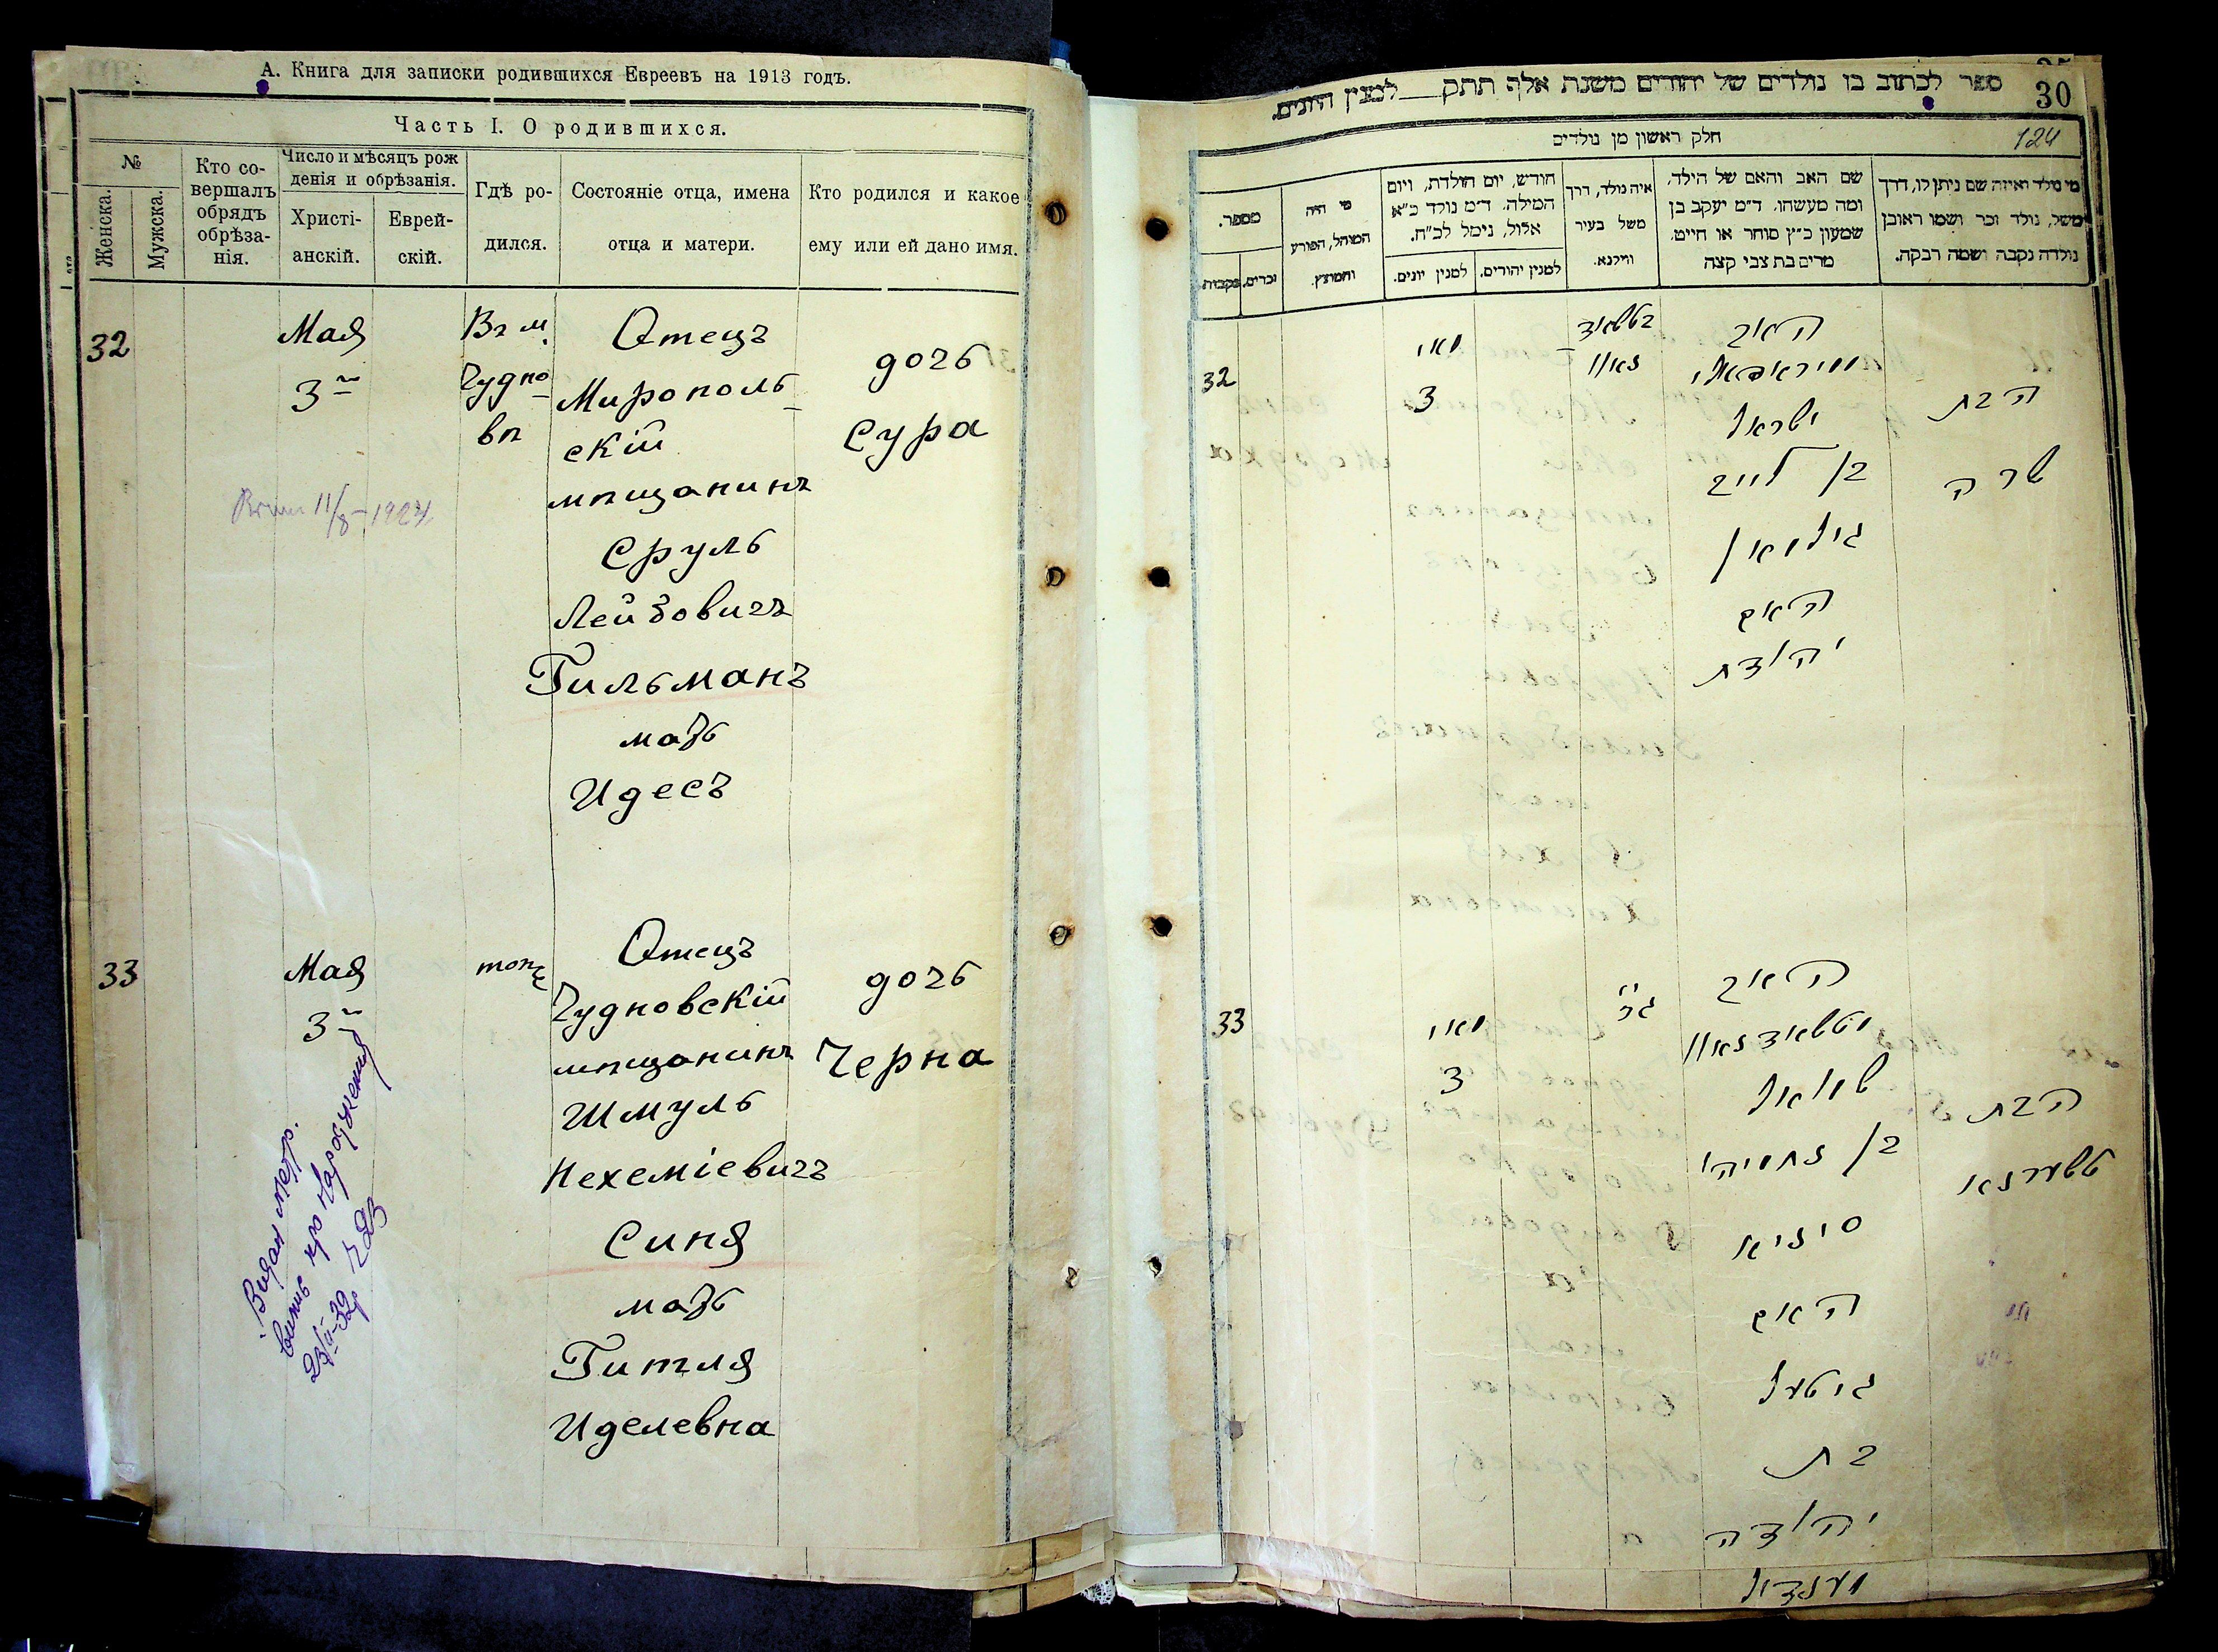 А. Книга для записки родившихся Евреевъ на 1913 годъ.
Часть I. О родившихся.
№
Женска.
Мужска.
Кто со-
вершалъ
обрядъ
обрѣза-
нія.
Число и мѣсяцъ рож
денія и обрѣзанія.
Христі-
анскій.
Еврей-
скій.
Гдѣ ро-
дился.
Состояніе отца, имена
отца и матери.
Кто родился и какое
ему или ей дано имя.
32
Мая
3
Въ м.
Чудно
вѣ
Отецъ
Мирополь
скій
мѣщанинъ
Сруль
Лейбовичъ
Гильманъ
мать
Идесъ
дочь
Сура
11/8-1924
33
Мая
3
тоже
Отецъ
Чудновскій
мѣщанинъ
Шмуль
Нехеміевичъ
Синя
мать
Гитля
Иделевна
дочь
Черна
Видан метр.
випис про народження
ספר לכתוב בו נולדים של יהודים משנת אלף תתק למנין היונים.
30
חלק ראשון מן נולדים
124
מספר.
נקבות.
זכרים.
מי היה
המוהל, הפורע
והמוצץ.
חודש, יום הולדת, ויום
המילה. ד״מ נולד כ״א
אלול, נימל לכ״ח.
למנין יונים.
למנין יהודים.
איה נולד, דרך
משל בעיר
ווילנא.
שם האב והאם של הילד,
ומה מעשהו. ד״מ יעקב בן
שמעון כ״ץ סוחר או חייט.
מרים בת צבי קצה
מי נולד ואיזה שם ניתן לו, דרך
משל, נולד זכר ושמו ראובן
נולדה נקבה ושמה רבקה.
32
מאי
3
בטשוד
נאוו
האב
ישראל
בן לייב
גילמאן
האם
יהודת
הבת
שרה
33
מאי
3
האב
שמואל
בן נחמיהי
סיניא
האם
גיטעל
בת
יהודה
הבת
טשערנאי